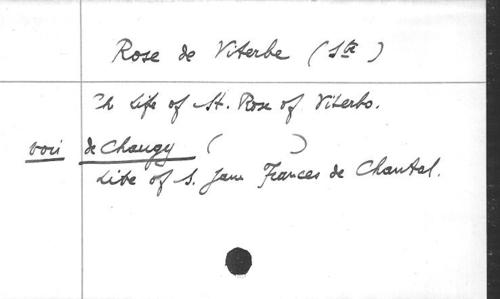 Rose de Viterbe (Ste)
Th Life of St. Rose of Viterbo.
voir de Chaugy ( )
Life of S. Jane Frances de Chantal.